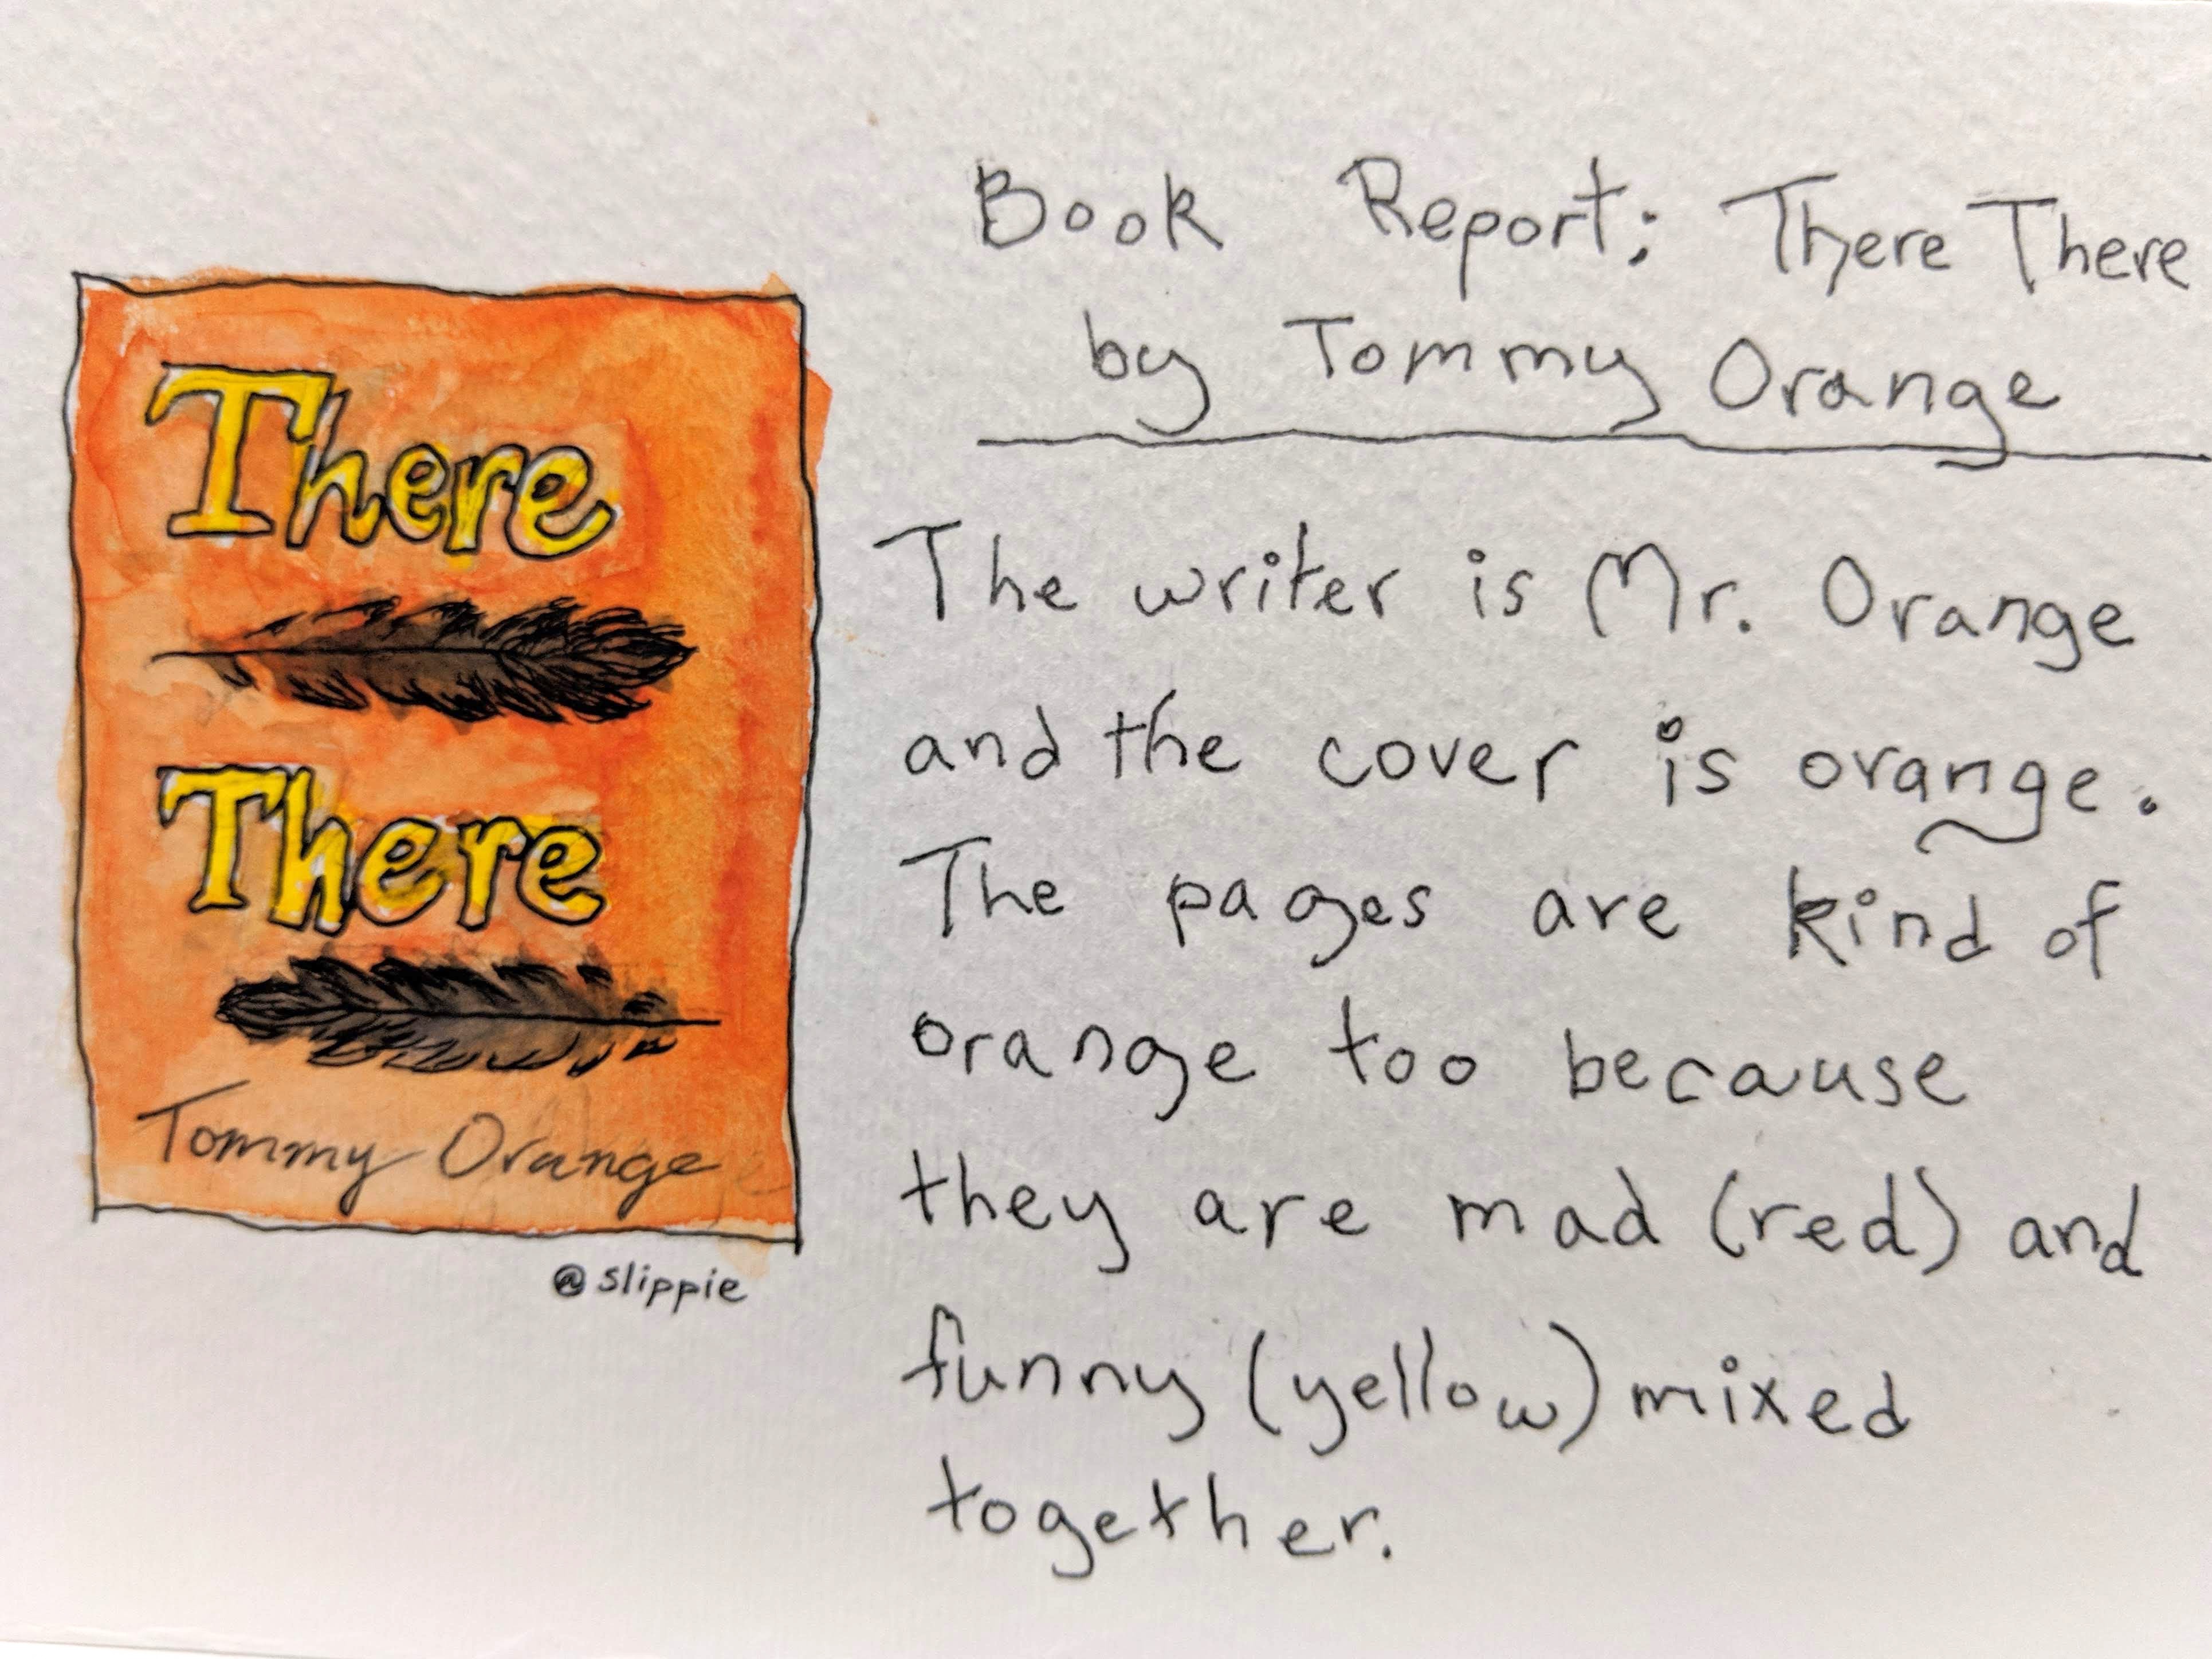 There
There
Tommy Orange
@slippie
Book Report: There There
by Tommy Orange
The writer is Mr. Orange
and the cover is orange.
The pages are kind of
orange too because
they are mad (red) and
funny (yellow) mixed
together.